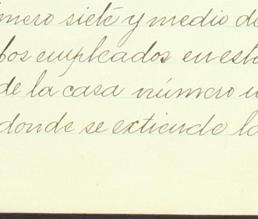 número siete y medio de
bos empleados en est
de la casa número u
donde se extiende la